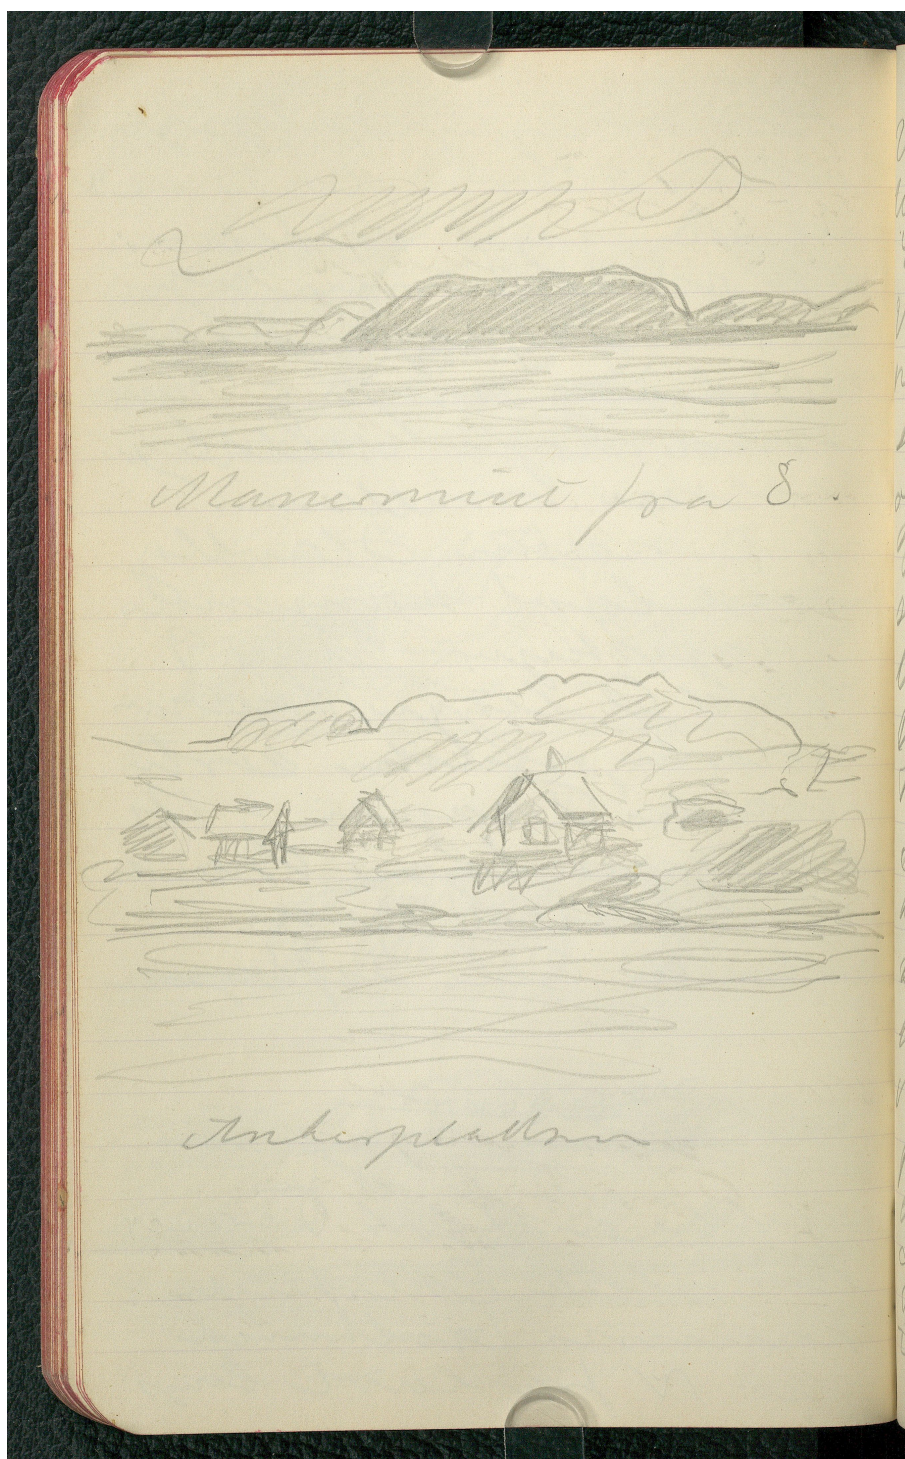 Manermiut fra S.
Ankerpladsen